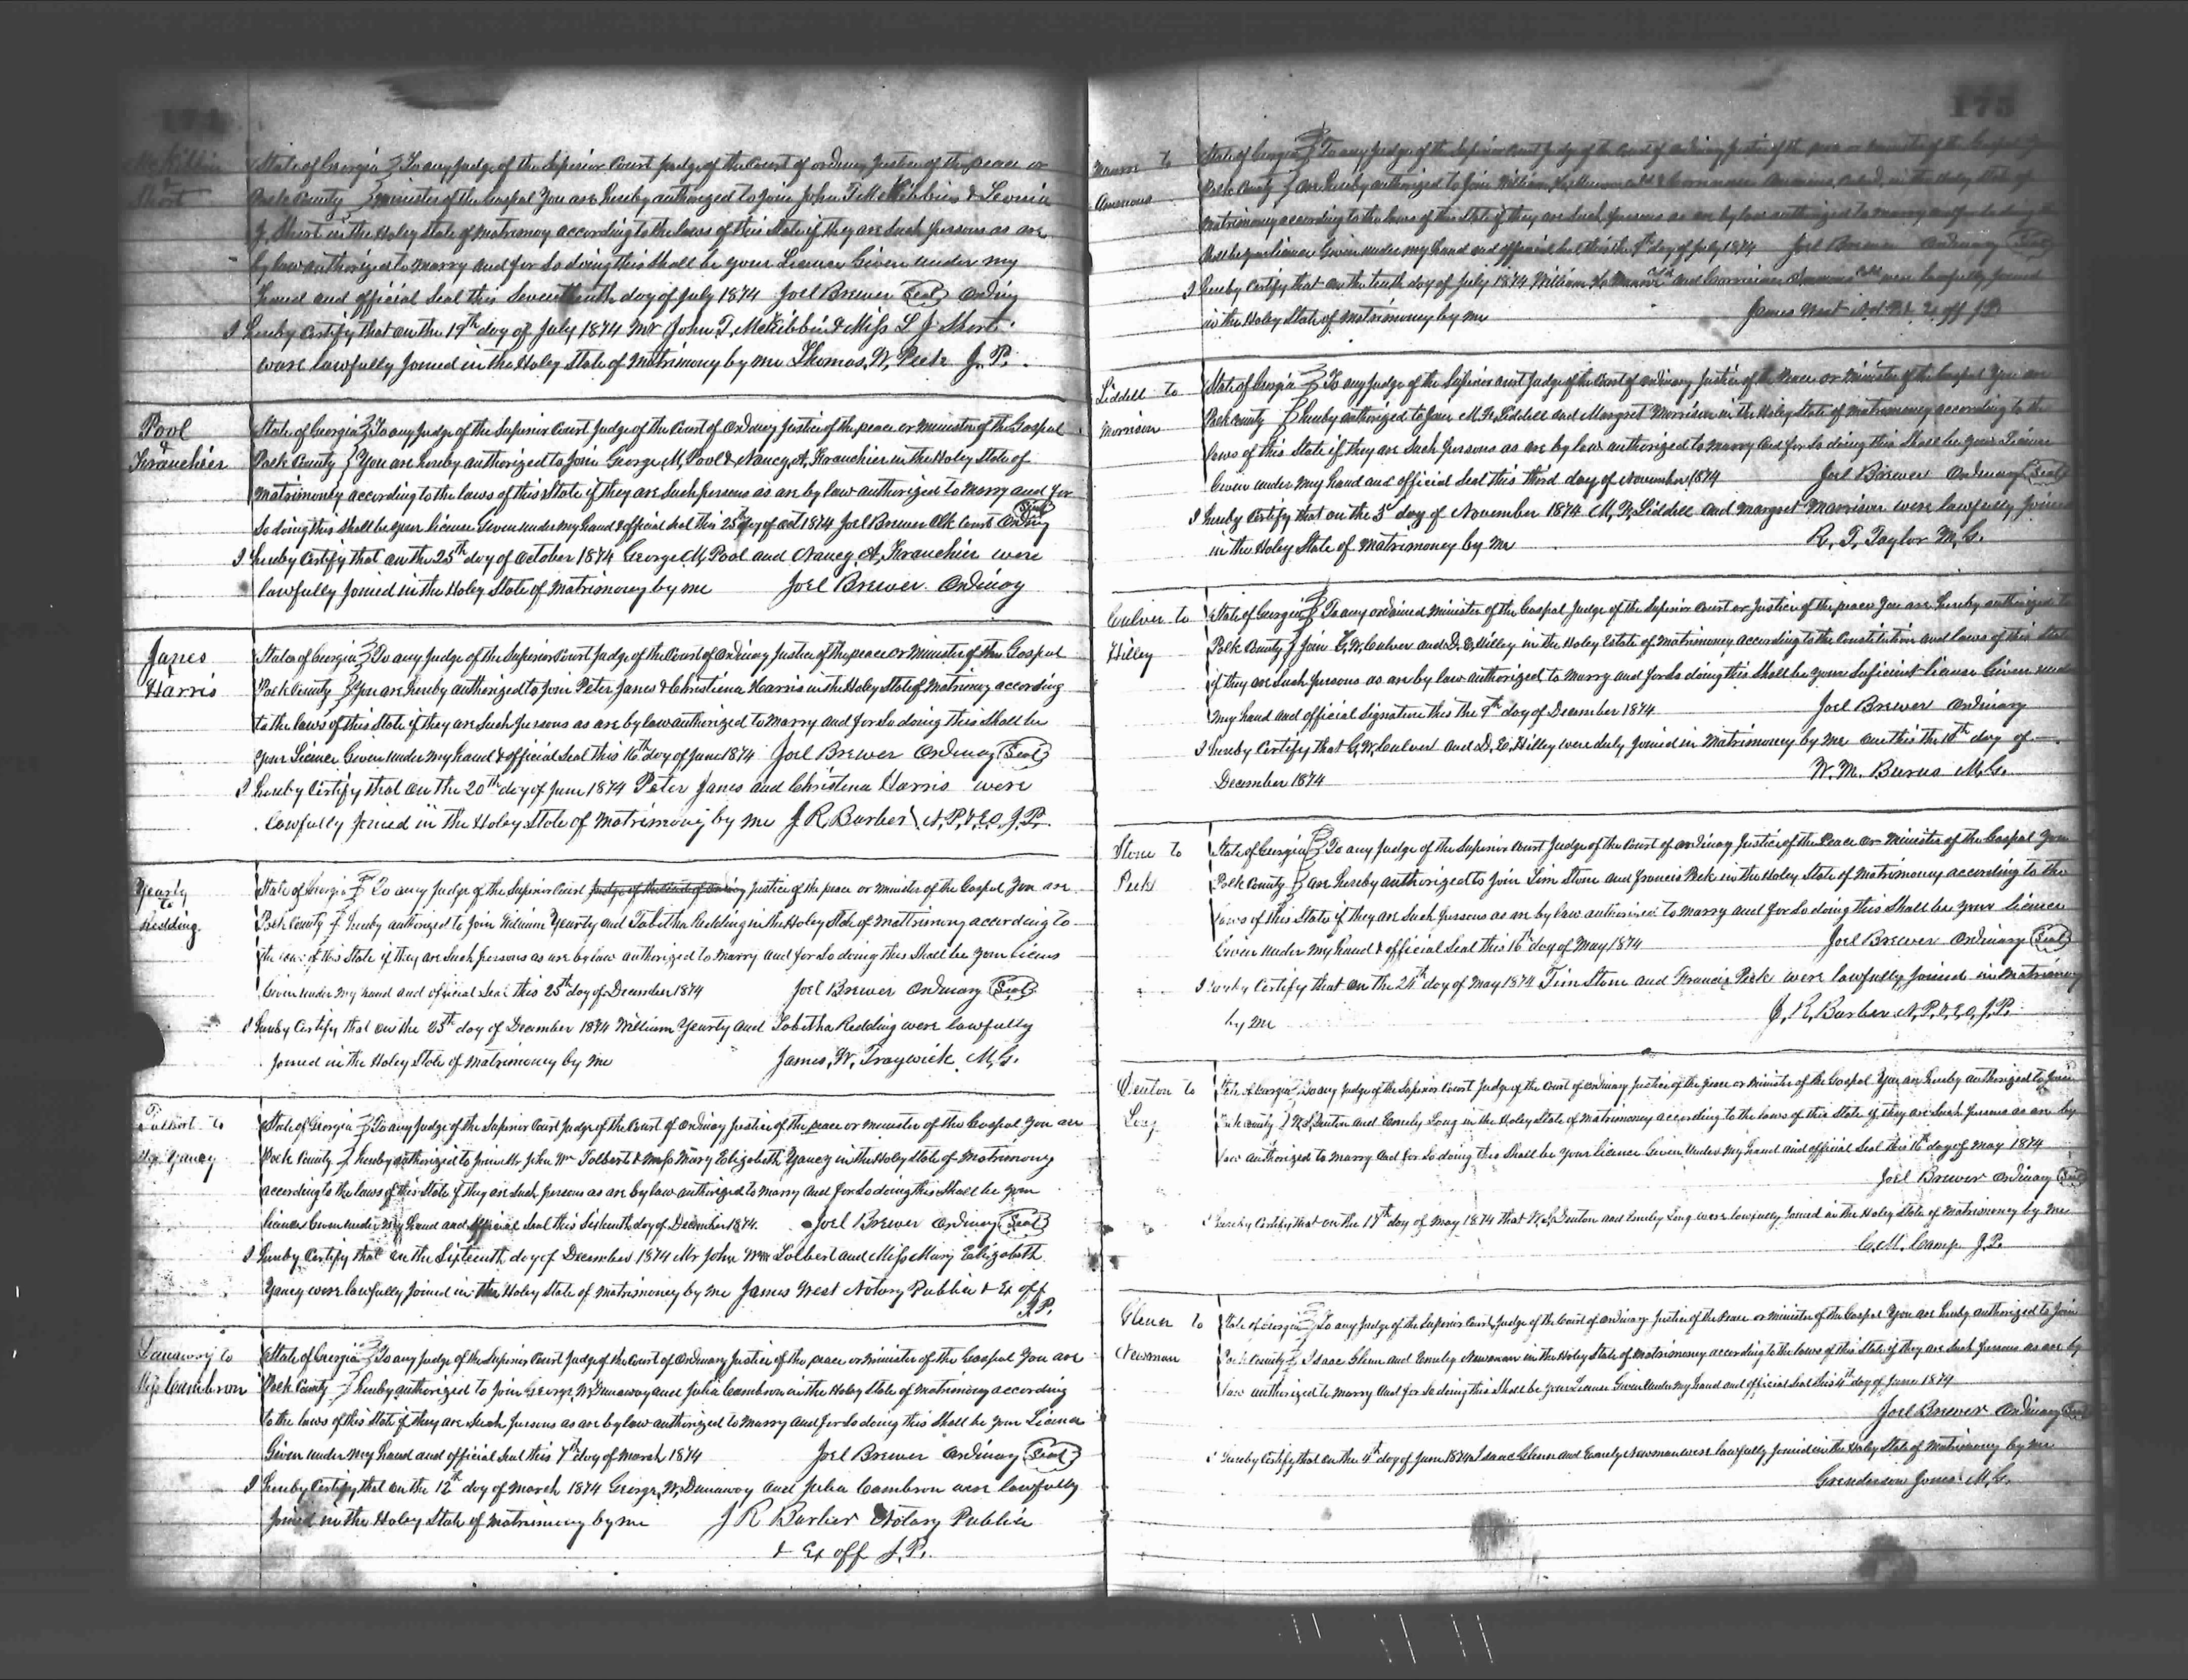 174
McKibbin
&
Short
State of Georgia } To any Judge of the Superior Court Judge of the Court of ordinary Justice of the peace or
Polk County } minister of the Gospal You are hereby authorized to join John T McKibbin & Levinia
J. Short in the Holey State of Matrimoy according to the laws of this State if they are Such persons as are
by law authorized to marry and for So doing this Shall be your Licence Given under my
hand and official Seal this Seventeenth day of July 1874 Joel Brewer Seal Ordiny
I hereby certify that on the 19th day of July 1874 Mr John T. McKibbin & Miss L J Short
ware lawfully Joined in the Holey State of Matrimony by me Thomas W. Peek J. P.
Pool
&
Kranchier
State of Georgia } To any Judge of the Superior Court Judge of the Court of Ordinary Justice of the peace or minister of the Gospel
Polk County } You are hereby authorized to Join George M, Pool & Nancy, A, Kranchier in the Holey State of
Matrimoney according to the laws of this State if they are Such persons as are by law authorized to Marry and for
So doing this shall be your licence Given under my hand & official Seal this 25th day of oct 1874 Joel Brewer Clk Court Ordiny Seal
I hereby certify that on the 25th day of October 1874 George M, Pool and Nancy A, Kranchier were
lawfully Joined in the Holey State of Matrimoney by me Joel Brewer Ordinay
Janes
&
Harris
State of Georgia } To any Judge of the Superior Court Judge of the Court of Ordinay Justice of the peace or Minister of the Gospal
Polk County } You are hereby authorized to Join Peter Janes & Christiena Harris in the Holey State of Matrimony according
to the laws of this State if they are Such persons as are by law authorized to Marry and for So doing this Shall be
your Licence Given under my hand & official Seal this 16th day of June 1874 Joel Brewer Ordinay Seal
I hereby Certify that on the 20th day of June 1874 Peter Janes and Christena Harris were
lawfully Joined in the Holey State of Matrimony by me J R Barber N, P, & E O J. P.
Yearty
to
Redding
State of Georgia } To any Judge of the Superior Court Judge of the Court of Ordinay Justice of the peace or minister of the Gospal You are
Polk County } hereby authorized to Join William Yearty and Tabitha Redding in the Holey State of Mattrimony according to
the laws of this State if they are Such persons as are by law authorized to Marry and for So doing this Shall be your Licens
Given under My hand and official Seal this 25th day of December 1874 Joel Brewer Ordinary Seal
I hereby Certify that on the 25th day of December 1874 William Yearty and Tobitha Redding were lawfully
Joined in the Holey State of Matrimoney by me James, W, Traywick M, G.
Tolbert to
Yancy
State of Georgia } To any Judge of the Superior Court Judge of the Court of Ordinay Justice of the peace or minister of the Gospal You are
Polk County } hereby authorized to Join Mr John Wm Tolbert & Miss Mary Elizabeth Yancy in the Holey State of Matrimony
according to the laws of this State if they are Such persons as are by law authorized to Marry and for So doing this Shall be your
licence Given under my hand and official Seal this Sixteenth day of December 1874. Joel Brewer Ordinay Seal
I hereby Certify that on the Sixteenth day of December 1874 Mr John Wm Tolbert and Miss Mary Elizabeth
Yancy were lawfully Joined in the Holey State of Matrimoney by me James West Notary Public & Ex off
J. P.
Dunaway to
Cambron
State of Georgia } To any Judge of the Superior Court Judge of the Court of Ordinay Justice of the peace or minister of the Gospal You are
Polk County } hereby authorized to Join George W Dunaway and Julia Cambron in the Holey State of Matrimoney according
to the laws of this State if they are Such persons as are by law authorized to Marry and for So doing this Shall be your Licence
Given under My hand and official Seal this 7th day of March 1874 Joel Brewer Ordinary Seal
I hereby Certify that on the 12th day of March 1874 George, W, Dunaway and Julia Cambron were lawfully
Joined in the Holey State of Matrimoney by me J R Barber Notary Public
& Ex off J. P.
175
to
Ammons
State of Georgia } To any Judge of the Superior Court Judge of the Court of ordinary Justice of the peace or minister of the Gospal
Polk County } are hereby authorized to Join William in the Holy State of
Matrimoney according to the laws of this State if they are Such persons as are by law authorized to marry and for So doing
Given under my hand and official Seal this the 9th day of July 1874 Joel Brewer Ordinary Seal
I hereby Certify that on the tenth day of July 1874 William and Ammons Cold were lawfully Joined
in the Holey State of Matrimoney by me James West N P & Ex off J P
Liddell to
Morrison
State of Georgia } To any Judge of the Superior Court Judge of the Court of ordinary Justice of the Peace or Minister of the Gospal You are
Polk County } hereby authorized to Join M. R. Liddell and Margret Morrison in the Holey State of Matrimoney according to the
laws of this State if they are Such persons as are by law authorized to marry and for So doing this Shall be your Licence
Given under my hand and official Seal this third day of November 1874 Joel Brewer Ordinary Seal
I hereby Certify that on the 3d day of November 1874 M, R, Liddell and Margret Morrison were lawfully Joined
in the Holey State of Matrimoney by me R. T. Taylor M, G.
Culver to
Hilley
State of Georgia } To any ordained Minister of the Gospal Judge of the Superior Court or Justice of the peace You are hereby authorized to
Polk County } Join G, W, Culver and D. E, Hilley in the Holey Estate of Matrimoney according to the Constitution and laws of this State
if they are Such persons as are by law authorized to Marry and for So doing this Shall be your Suficient licence Given under
My hand and official Signature this the 9th day of December 1874 Joel Brewer Ordinary
I hereby Certify that G, W, Culver and D, E, Hilley were duly Joined in Matrimoney by me on this the 10th day of
December 1874 W. M. Burns M, G.
Stone to
Peek
State of Georgia } To any Judge of the Superior Court Judge of the Court of ordinary Justice of the Peace or Minister of the Gospal You
Polk County } are hereby authorized to Join Tim Stone and Francis Peek in the Holey State of Matrimoney according to the
laws of this State if they are Such persons as are by law authorized to marry and for So doing this Shall be your licence
Given under my hand & official Seal this 16th day of May 1874 Joel Brewer Ordinary Seal
I hereby Certify that on the 24th day of May 1874 Tim Stone and Francis Peek were lawfully Joined in Matrimony
by Me J, R, Barber N, P, & E, O, J, P.
Denton to
Long
State of Georgia } To any Judge of the Superior Court Judge of the Court of ordinary Justice of the peace or Minister of the Gospal You are hereby authorized to Join
Polk County } Denton and Emely Long in the Holey State of Matrimoney according to the laws of this State if they are Such persons as are by
law authorized to Marry and for So doing this Shall be your licence Given Under My hand and official Seal this 16th day of May 1874
Joel Brewer Ordinary Seal
I hereby Certify that on the 17th day of May 1874 that Denton and Emeley Long were lawfully Joined in the Holey State of Matrimoney by me
C. M. Camp J. P.
Glenn to
Newman
State of Georgia } To any Judge of the Superior Court Judge of the Court of ordinary Justice of the Peace or Minister of the Gospal You are hereby authorized to Join
Polk County } Isaac Glenn and Emeley Newman in the Holey State of Matrimoney according to the laws of this State if they are Such persons as are by
law authorized to Marry and for So doing this Shall be your Licence Given Under My hand and official Seal this 4th day of June 1874
Joel Brewer Ordinary Seal
I hereby Certify that on the 4th day of June 1874 Isaac Glenn and Emely Newman were lawfully Joined in the Holey State of Matrimoney by me
Grenderson Jones M, G.